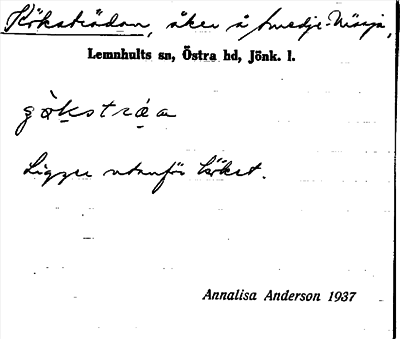 Köksträdan, åker å Smedje-Nässja,
Lemnhults sn, Östra hd, Jönk. l.
Ligger utanför köket.
Annalisa Anderson 1937